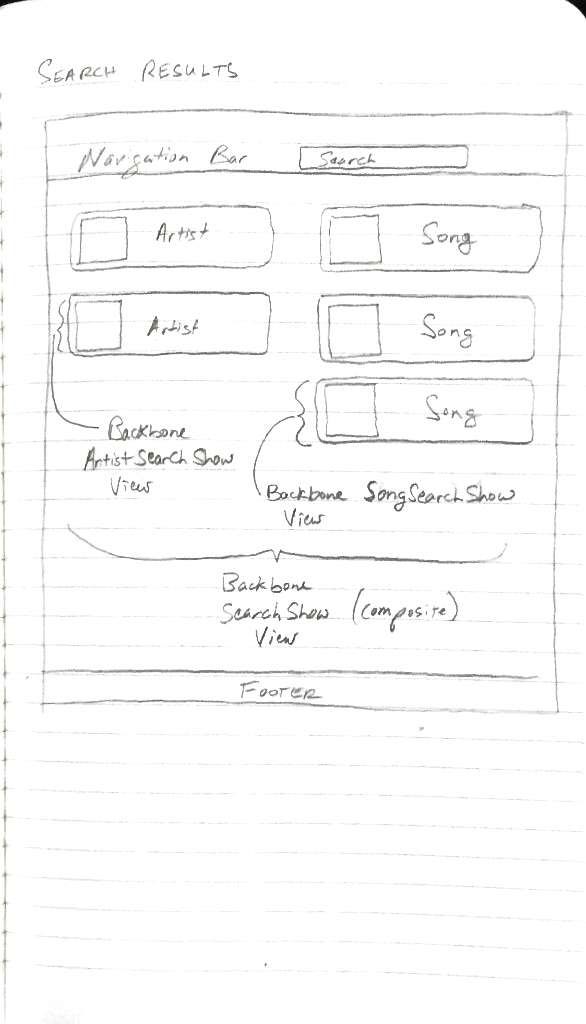 SEARCH RESULTS
Navigation Bar Search
Artist Song
Artist Song
Song
Backbone
ArtistSearchShow
View
Backbone SongSearchShow
View
Backbone
SearchShow (composite)
View
FOOTER